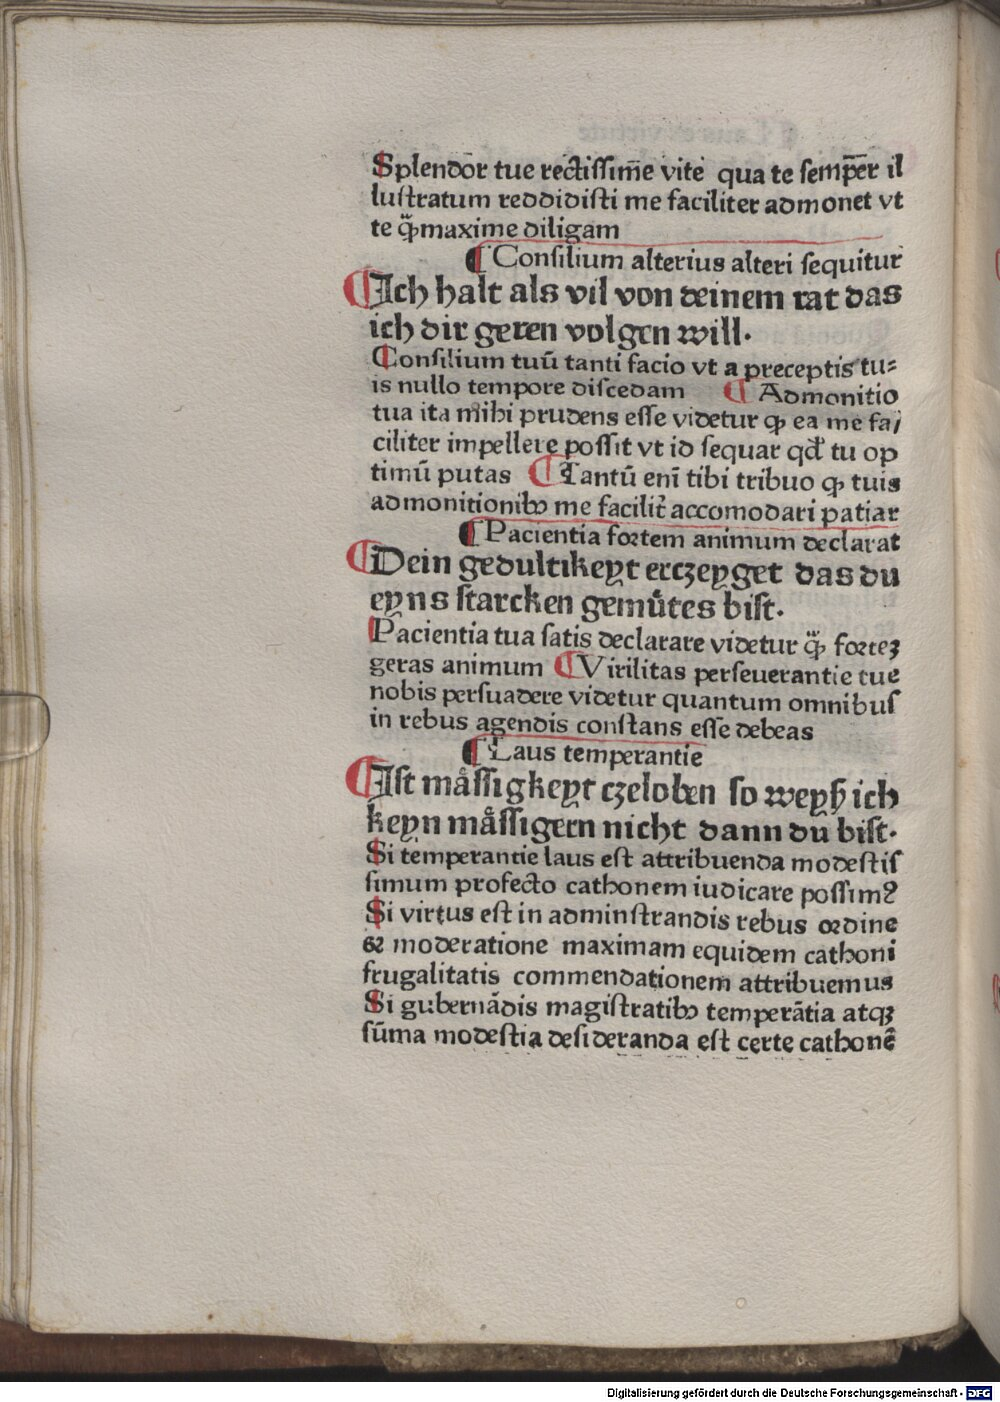 Splendor tue rectissim̄e vite qua te semp̄er il
lustratum reddidisti me faciliter admonet vt
te q̃ꝫ maxime diligam
¶ Consilium alterius alteri sequitur
¶ Ich halt als vil von deinem rat das
ich dir geren volgen will.
Consilium tuū tanti facio vt a preceptis tu⸗
is nullo tempore discedam ¶ Admonitio
tua ita mihi prudens esse videtur ꝙ ea me fa/
ciliter impellere possit vt id sequar qd̓ tu op
timū putas ¶ Tantū eni̅ tibi tribuo ꝙ tuis
admonitionibꝰ me facilit̓ accomodari patiar
¶ Pacientia fortem animum declarat
¶ Dein gedultikeyt erczeyget das du
eyns starcken gemuͤtes bist.
Pacientia tua satis declarare videtur q̃ꝫ forteꝫ
geras animum ¶ Virilitas perseuerantie tue
nobis persuadere videtur quantum omnibus
in rebus agendis constans esse debeas
¶ Laus temperantie
¶ Ist maͤssigkeyt czeloben so weyß ich
keyn maͤssigern nicht dann du bist.
Si temperantie laus est attribuenda modestis
simum profecto cathonem iudicare possimꝰ
Si virtus est in adminstrandis rebus ordine
⁊ moderatione maximam equidem cathoni
frugalitatis commendationem attribuemus
Si gubernādis magistratibꝰ temperātia atqꝫ
sūma modestia desideranda est certe cathonē
Digitalisierung gefördert durch die Deutsche Forschungsgemeinschaft - DFG